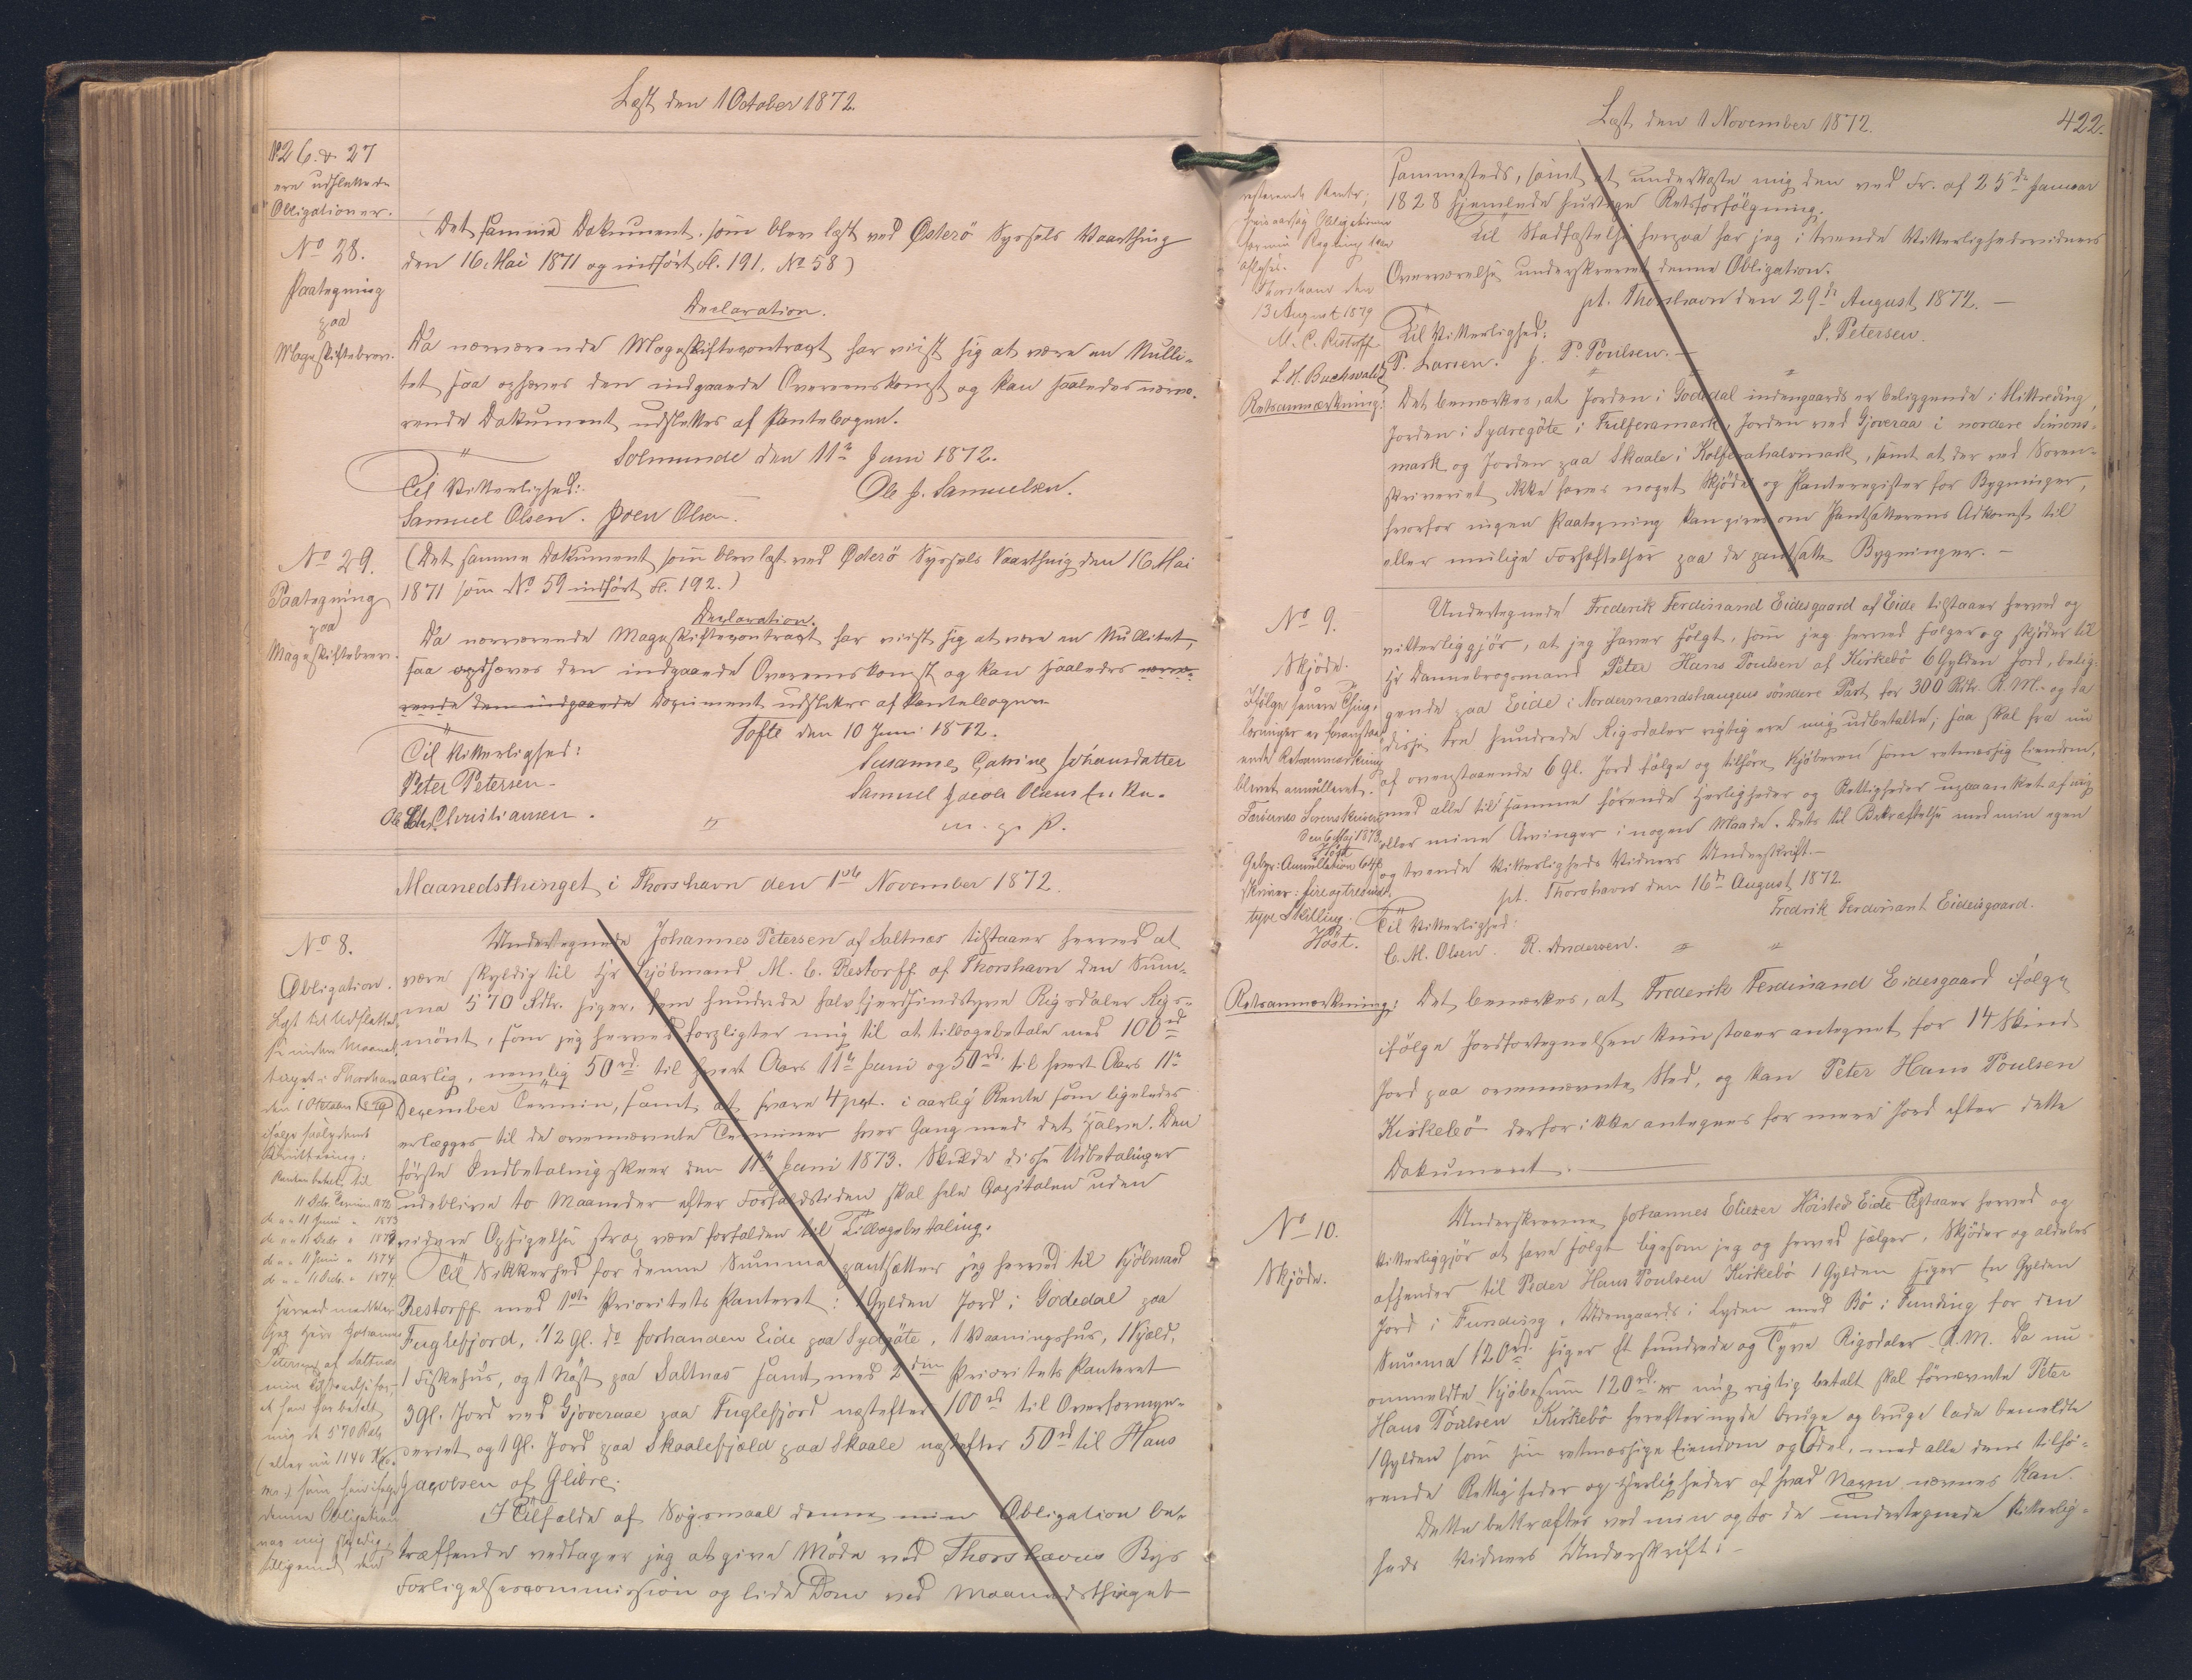 Læst den 1 October 1872.
No 26 & 27
ere udslettede
Obligationer.
No 28.
Paategning
paa
Mageskiftebrev.
(Det samme Dokument, som blev læst ved Østerö Syssels Vaarthing
den 16 Mai 1871 og indfört Fl. 191, No 58)
Declaration.
Da nærværende Mageskiftecontragt har viist sig at være en Nulli-
tet saa ophæves den indgaaede Overenskomst og kan saaledes nærvæ-
rende Dokument udslettes af Pantebogen.
Solmunde den 11te Juni 1872.
Til Vitterlighed:
Ole J. Samuelsen.
Samuel Olsen. Joen Olsen.
No 29.
Paategning
paa
Mageskiftebrev.
(Det samme Dokument som blev læst ved Østerö Syssels Vaarthing den 16 Mai
1871 som No 59 indfört Fl. 192.)
Declaration.
Da nærværende Mageskiftecontragt har viist sig at være en Nullitet,
saa ophæves den indgaaede Overenskomst og kan saaledes nærvæ-
rende den indgaaede Document udslettes af Pantebogen
Tofte den 10 Juni 1872.
Til Vitterlighed:
Susanne Catrine Johansdatter
Peter Petersen
Samuel Jacob Olsens Enke.
Ole Chr. Christiansen.
m. f. P.
Maanedsthinget i Thorshavn den 1ste November 1872.
No 8.
Obligation.
Læst til Udslettelse
paa Maaneds-
tinget i Thorshavn
den 1 October 1879
ifølge saalydende
Qvittering:
Renten betalt til
11 Decbr. Termin 1872
do " " 11 Juni " 1873
do " " 11 Decbr. " 1873
do " " 11 Juni " 1874
do " " 11 Decbr. " 1874
Petersen af Saltnæs
at han har betalt
mig de 570 Rdlr
(eller nu 1140 Kr.
denne Obligation
var mig skyldig
tilligemed den
Undertegnede Johannes Petersen af Saltnæs tilstaaer herved at
være skyldig til Hr Kjöbmand M. C. Restorff af Thorshavn den Sum-
ma 570 Rdlr. siger, fem hundrede halvfjerdsindstyve Rigsdaler Rigs-
mönt, som jeg herved forpligter mig til at tilbagebetale med 100 rd
aarlig, nemlig 50 rd. til hvert Aars 11te Juni og 50 rd. til hvert Aars 11te
December Termin, samt at svare 4 pCt. i aarlig Rente som ligeledes
erlægges til de ovennævnte Terminer hver Gang med det halve. Den
förste Indbetaling skeer den 11te Juni 1873. Skulde disse Udbetalinger
udeblive to Maaneder efter Forfaldstiden skal hele Capitalen uden
videre Opsigelse strax være forfalden til Tilbagebetaling.
Til Sikkerhed for denne Summa pantsætter jeg herved til Kjöbmand
Restorff med 1ste Prioritets Panteret: 1 Gylden Jord i Godedal paa
Fuglefjord, 1/2 Gl. do forhanden Eide paa Sydgöte, 1 Vaaningshus, 1 Kjald,
1 Fiskehus, og 1 Nöst paa Saltnæs samt med 2den Prioritets Panteret
3 Gl. Jord ved Gjoveraae paa Fuglefjord næstefter 100 rd til Overformyn-
deriet og 1 Gl. Jord paa Skaalefjæld paa Skaale næstefter 50 rd til Hans
Jacobsen af Glibre.
I Tilfælde af Sögsmaal denne min Obligation be-
træffende vedtager jeg at give Möde ved Thorshavns Byes
Forligelsescommission og lide Dom ved Maanedsthinget
Læst den 1 November 1872.
422.
resterende Renter;
Thorshavn den
13 August 1879
M. C. Restorff
L. H. Buchwaldt
sammesteds, samt at underkaste mig den ved Fr. af 25de Januar
1828 hjemlede hurtige Retsforfölgning.
Til Stadfæstelse herpaa har jeg i tvende Vitterlighedsvidners
Overværelse underskrevet denne Obligation.
pt. Thorshavn den 29de August 1872.
Til Vitterlighed:
J. Petersen.
P. Larsen. J. P. Poulsen.
Retsanmærkning:
Det bemærkes, at Jorden i Godedal indengaards er beliggende i Mittreding,
Jorden i Sydregöte i Trilferamark, Jorden ved Gjoveraa i nordere Simons-
mark og Jorden paa Skaale i Kolferahalvmark, samt at der ved Soren-
skriveriet ikke haves noget Skjöde og Panteregister for Bygninger,
hvorfor ingen Paategning kan gives om Pantsætterens Adkomst til
eller mulige Forhæftelser paa de pantsatte Bygninger.
No 9.
Skjöde.
Ifölge senere Thing-
læsninger er foranstaa-
ende Retsanmærkning
blevet annulleret.
Færöernes Sorenskriveri
den 6 Maj 1873
Höst
Gebyr: Annullation 64 s
skriver: fire og tredsinds-
tyve Skilling.
Höst.
Undertegnede Frederik Ferdinand Eidesgaard af Eide tilstaaer herved og
vitterliggjör, at jeg haver solgt, som jeg herved sælger og skjöder til
Hr Dannebrogsmand Peter Hans Poulsen af Kirkebö 6 Gylden Jord, belig-
gende paa Eide i Nordermandshaugens söndere Part for 300 Rdlr. R.M. og da
disse tre hundrede Rigsdaler rigtig ere mig udbetalte; saa skal fra nu
af ovenstaaende 6 Gl. Jord fölge og tilhöre Kjöberen som retmæssig Eiendom,
med alle til samme hörende Herligheder og Rettigheder upaaanket af mig
eller mine Arvinger i nogen Maade. Dette til Bekræftelse med min egen
og tvende Vitterligheds Vidners Underskrift.
pt. Thorshavn den 16de August 1872.
Til Vitterlighed:
Fredrik Ferdinant Eideisgaard.
C. M. Olsen. R. Andersen.
Retsanmærkning:
Det bemærkes, at Frederik Ferdinand Eidesgaard ifølge
ifölge Jordfortegnelsen kun staaer antegnet for 14 Skind
Jord paa ovennævnte Sted, og kan Peter Hans Poulsen
Kirkebö derfor ikke antegnes for mere Jord efter dette
Dokument.
No 10.
Skjöde.
Underskrevne Johannes Eliezer Hörsted Eide tilstaaer herved og
vitterliggjör at have solgt ligesom jeg og herved sælger, skjöder og aldeles
afhænder til Peder Hans Poulsen Kirkebö 1 Gylden siger En Gylden
Jord i Funding, Udengaards i Lyden med Bö i Funding for den
Summa 120 rd. siger Et hundrede og Tyve Rigsdaler R.M. Da nu
ommeldte Kjöbesum 120 rd. er mig rigtig betalt skal förnævnte Peter
Hans Poulsen Kirkebö herefter nyde bruge og bruge lade bemeldte
1 Gylden som sin retmæssige Eiendom og Odel, med alle dens tilhö-
rende Rettigheder og Herligheder af hvad Navn nævnes kan.
Dette bekræftes ved min og to de undertegnede Vitterlig-
heds Vidners Underskrift: